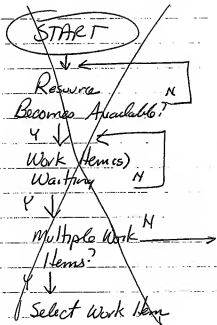 START
Resource
Becomes Available?
N
Y
Work Item(s)
Waiting
N
Y
Multiple Work
Items?
N
Y
Select Work Item